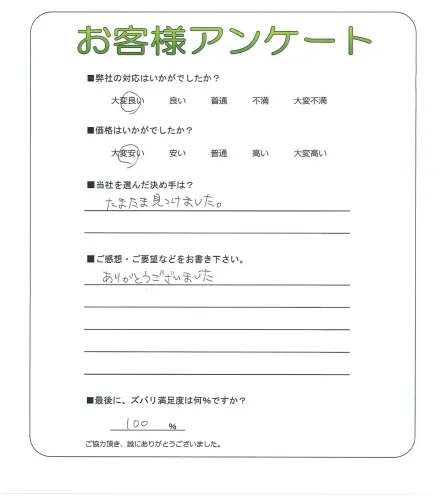 お客様アンケート
■弊社の対応はいかがでしたか?
大変良い 良い 普通 不満 大変不満
■価格はいかがでしたか?
大変安い 安い 普通 高い 大変高い
■当社を選んだ決め手は?
たまたま見つけました。
■ご感想・ご要望などをお書き下さい。
ありがとうございました
■最後に、ズバリ満足度は何%ですか?
100 %
ご協力頂き、誠にありがとうございました。